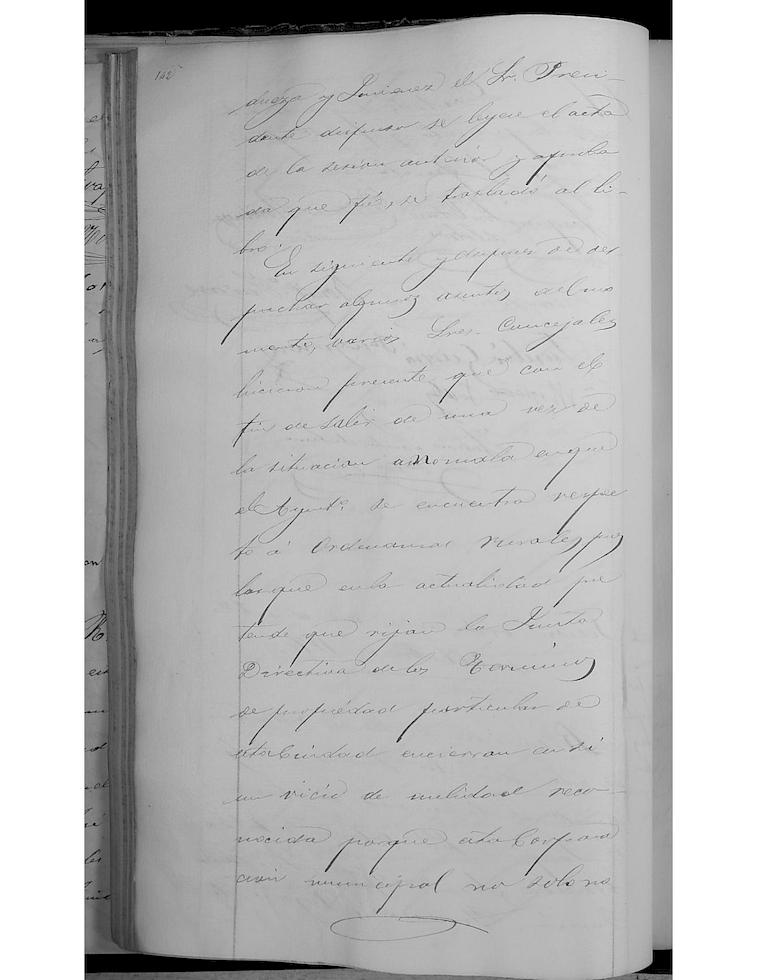 142
dueza y Jimenez el Sr. Presi-
dente dispuso se leyese el acta
de la sesion anterior y aproba
da que fué, se trasladó al li-
bro.
En siguiente y despues de des
pachar algunos asuntos del mo
mento, varios Sres. Concejales
hicieron presente que con el
fin de salir de una vez de
la situacion anormala en que
el Ayunto. se encuentra respec
to á Ordenanzas rurales, pues
las que en la actualidad pre
tende que rijan la Junta
Directiva de los Terminos
de propiedad particular de
esta Ciudad encierran en sí
un vicio de nulidad reco-
nocida porque esta Corpora
cion municipal no solo no